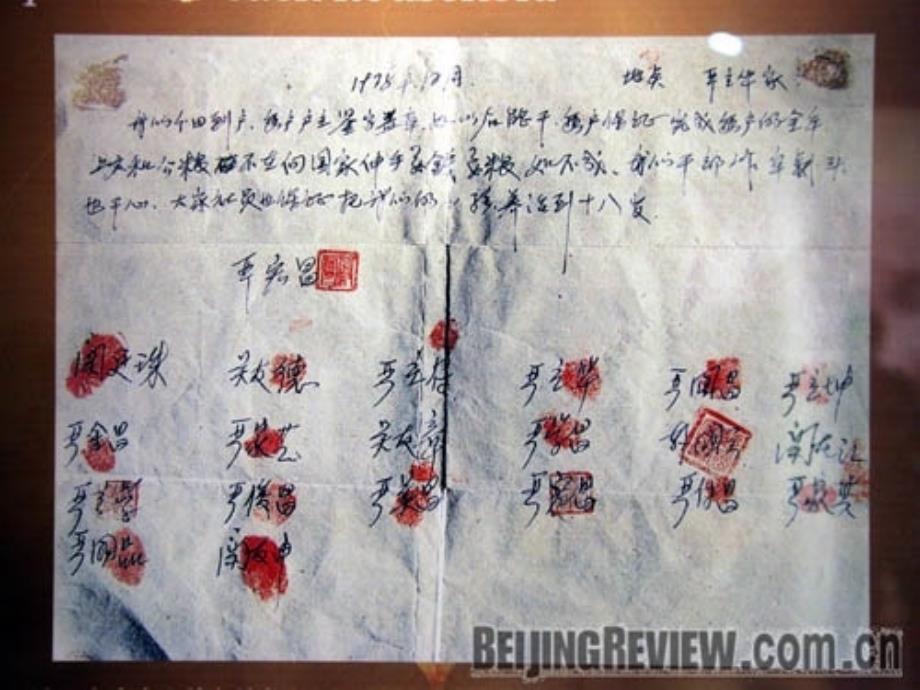 1978年12月 地点 严立华家
我们分田到户,每户户主签字盖章,如以后能干,每户保证完成每户的全年
上交和公粮 不在向国家伸手要钱要粮,如不成,我们干部作牢剎头
也干心,大家社员也保证把我们的小孩养活到十八岁。
严宏昌
关廷珠 关友德 严立符 严立华 严国昌 严立坤
严金昌 严家芝 关友章 严学昌 韩国云 关友江
严立学 严俊昌 严美昌 严宏昌 严付昌 严家其
严国品 关友申
BEIJINGREVIEW.com.cn